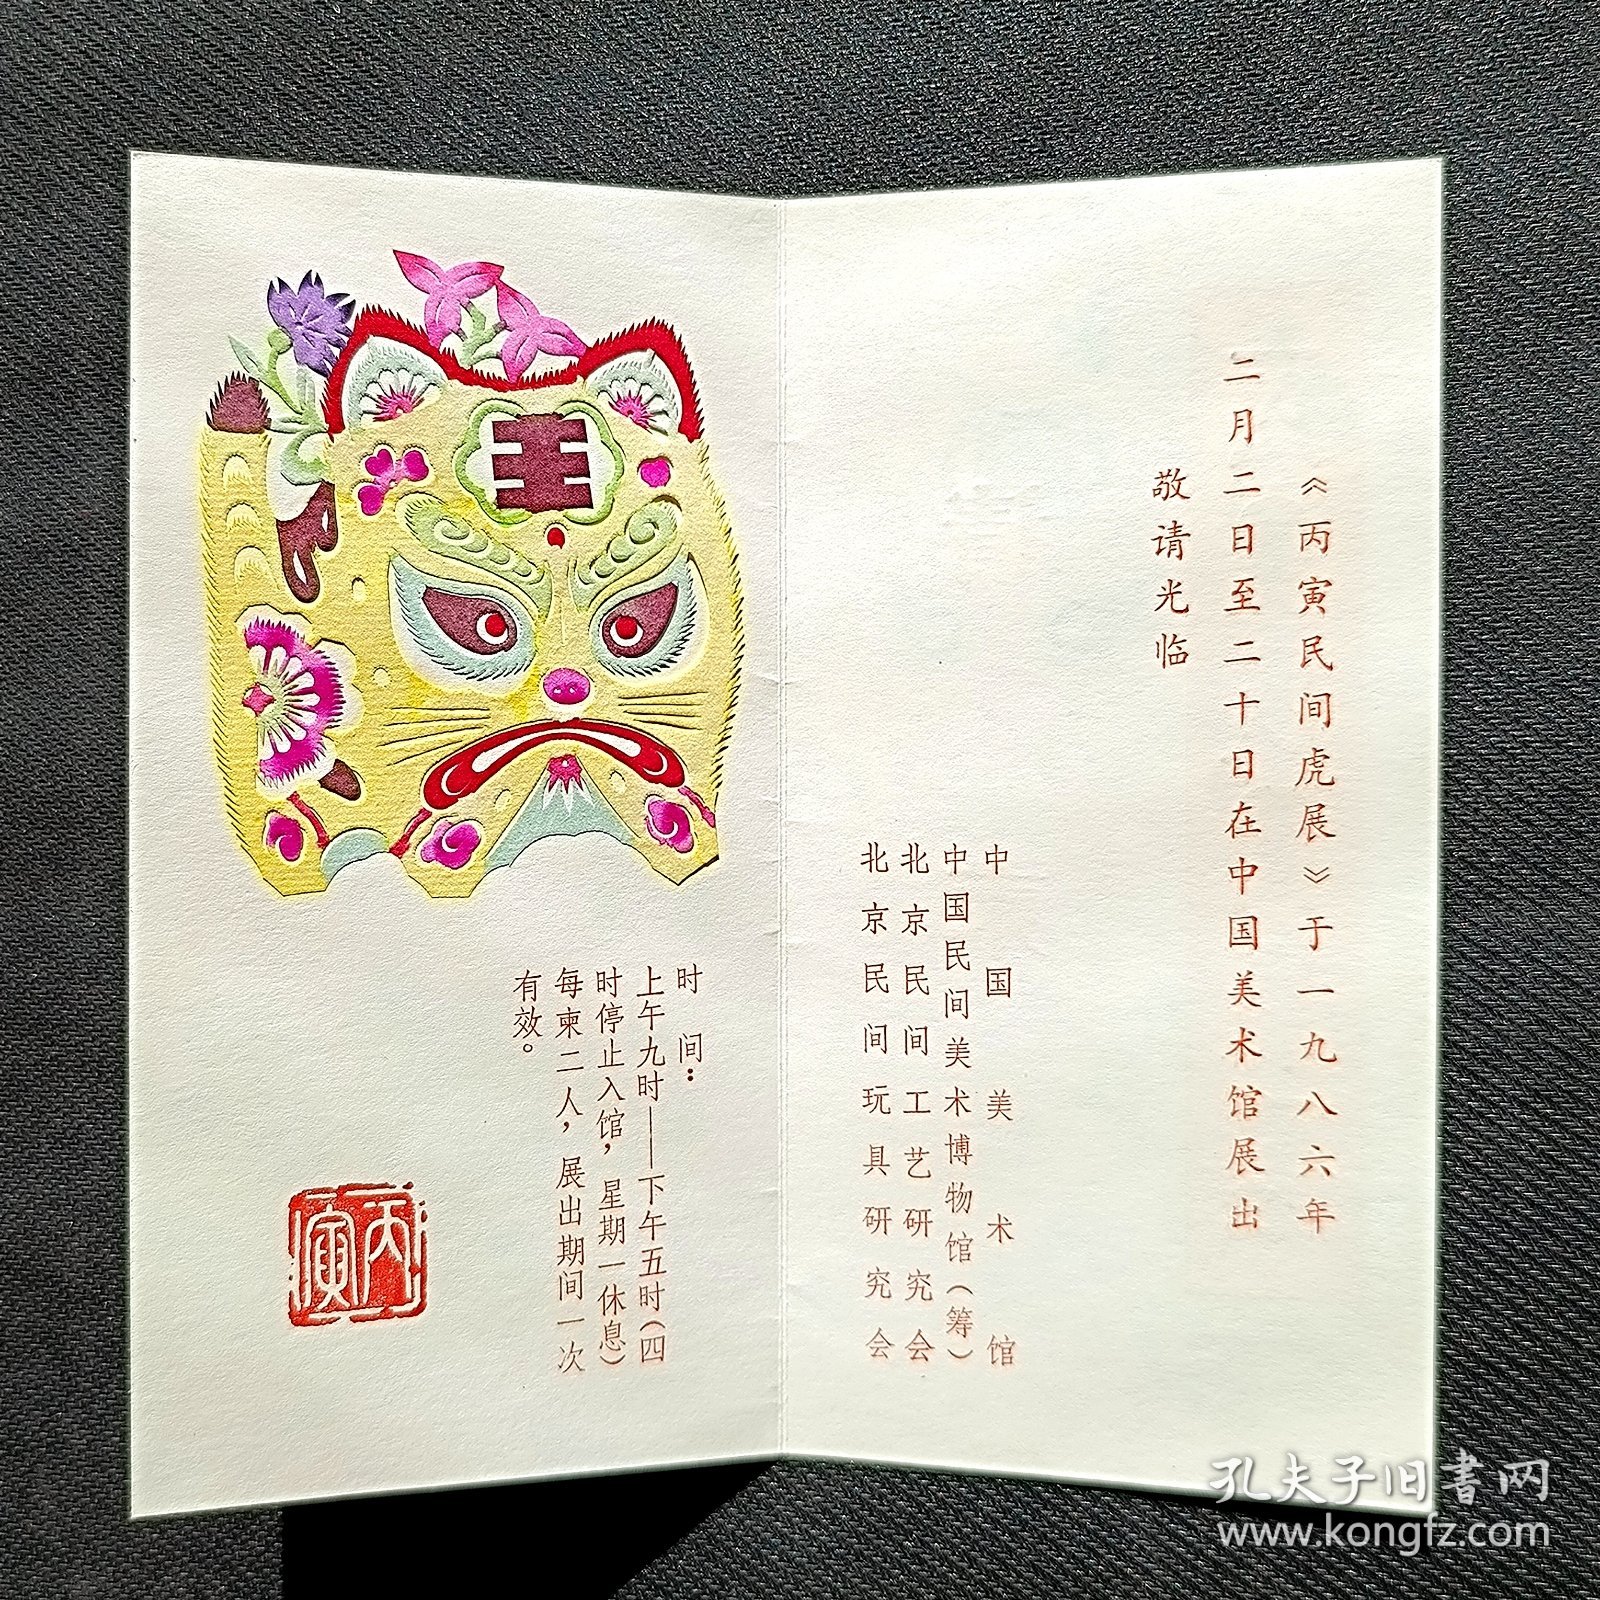 《丙寅民间虎展》于一九八六年
二月二日至二十日在中国美术馆展出
敬请光临
中国美术馆
中国民间美术博物馆(筹)
北京民间工艺研究会
北京民间玩具研究会
王
时间:
上午九时——下午五时(四
时停止入馆,星期一休息)
每柬二人,展出期间一次
有效。
丙寅
孔夫子旧书网
www.kongfz.com